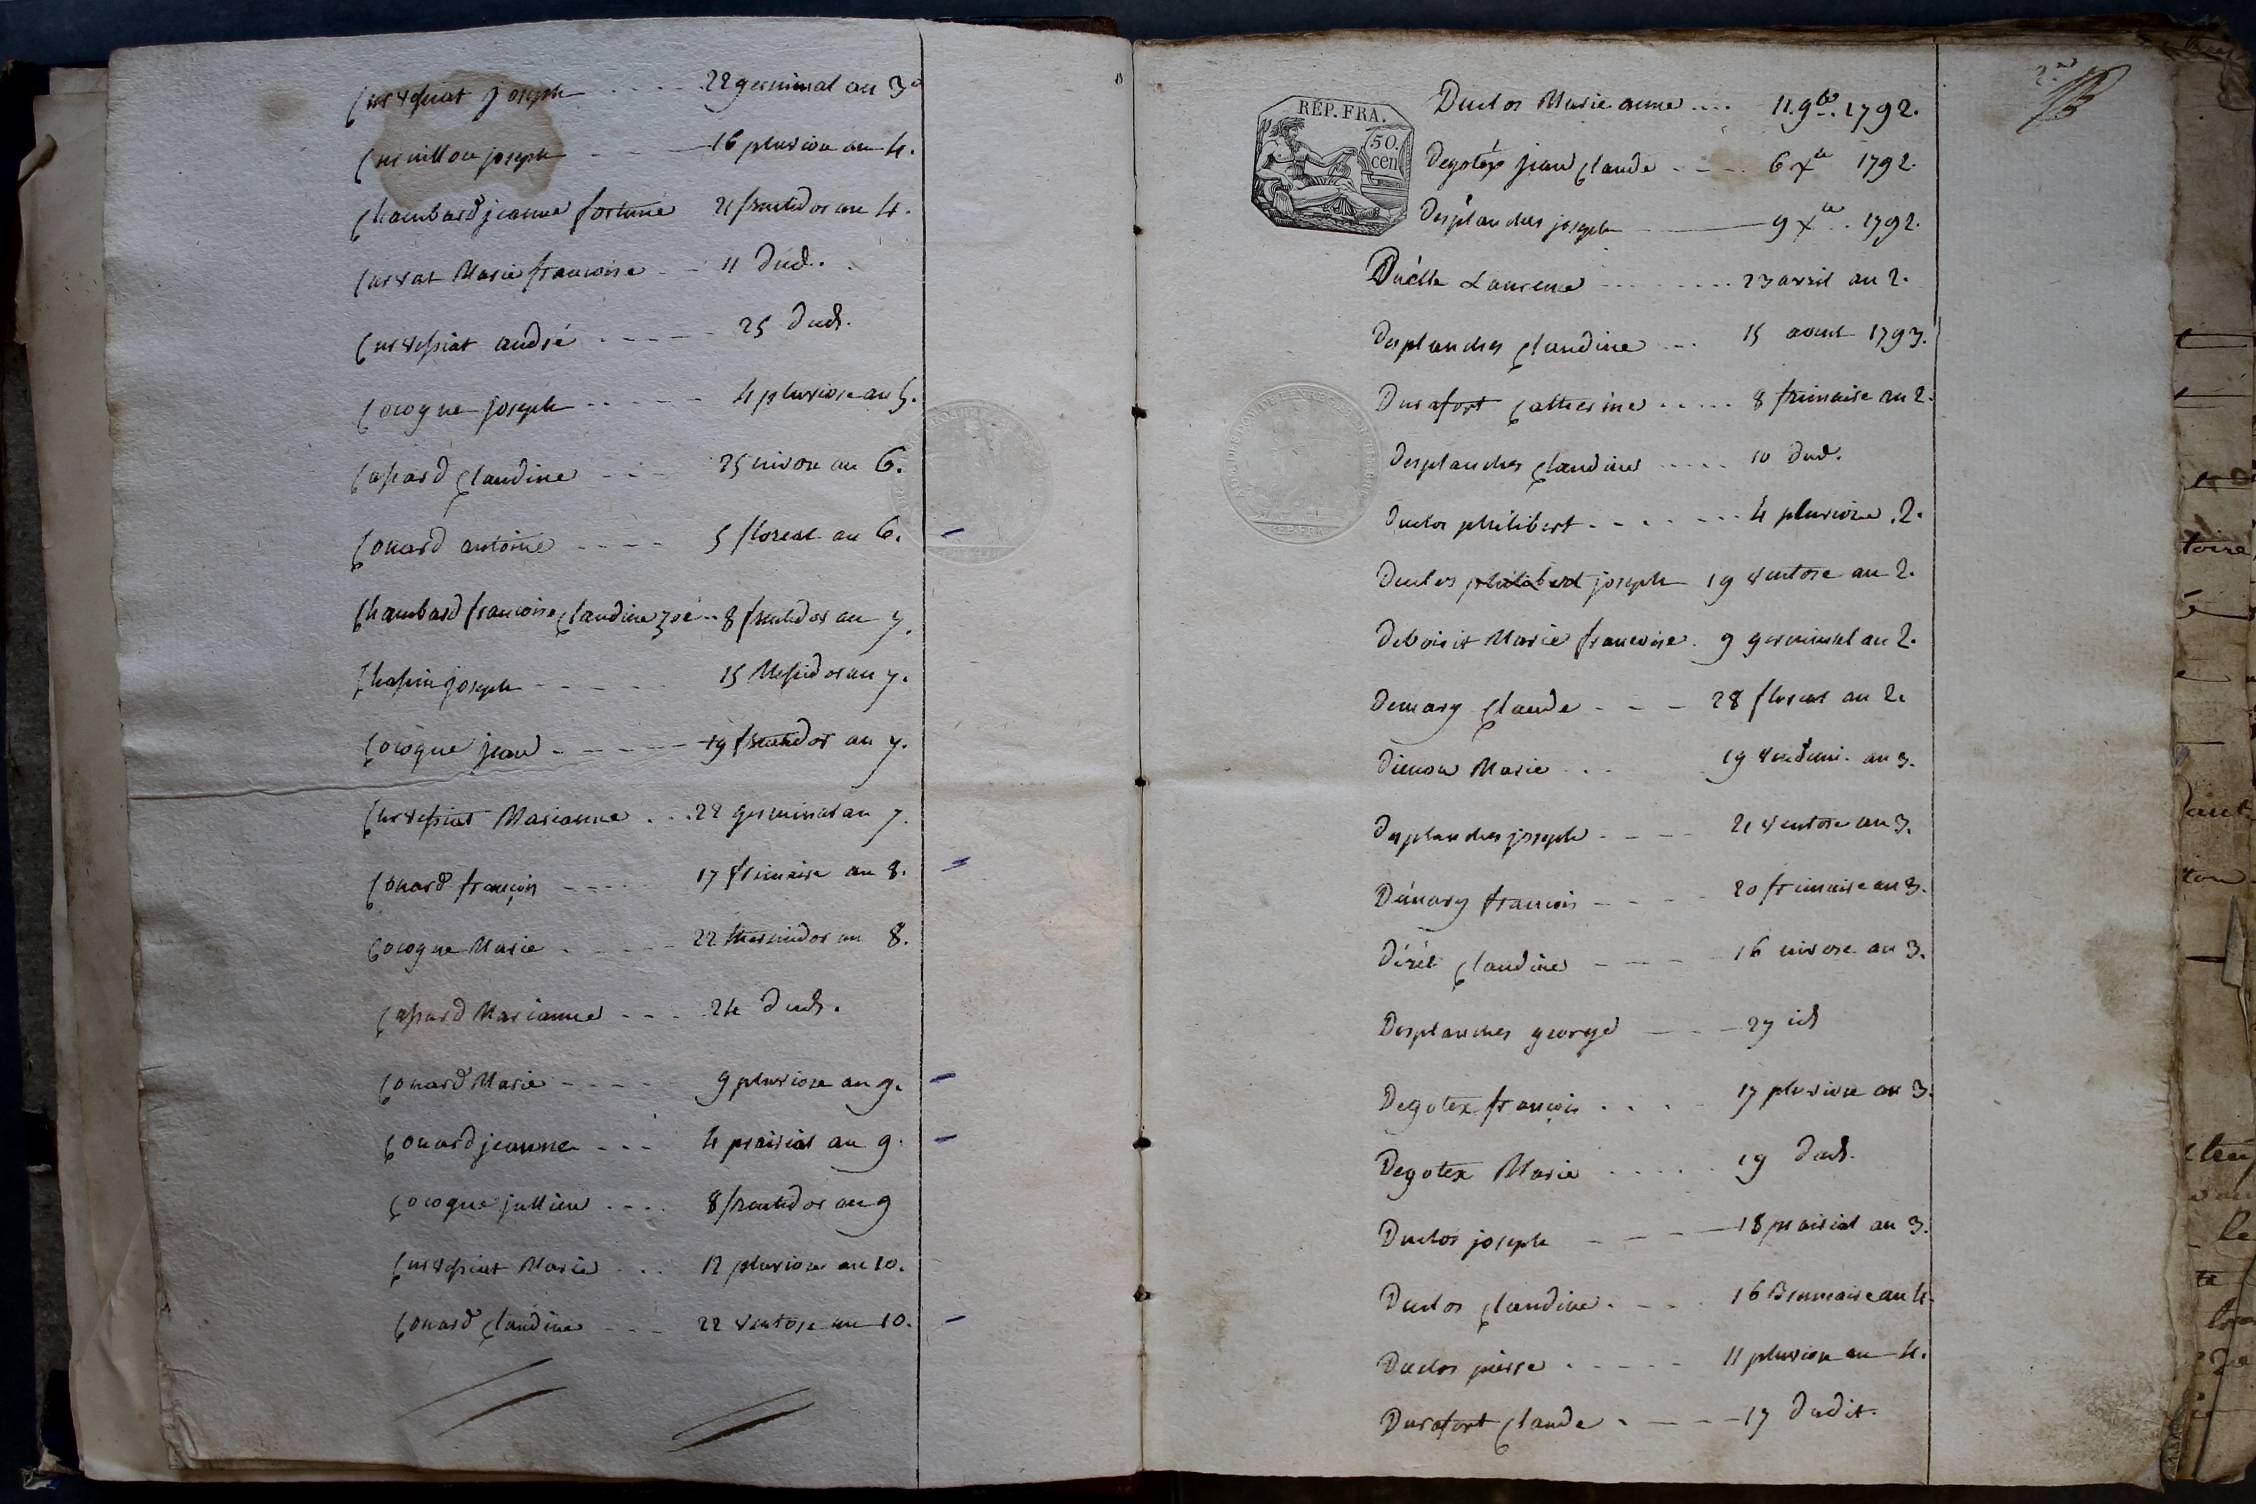 Curvessiat joseph .... 22 germinal an 3e
Cuvillou joseph - - - 16 pluviose an 4.
Chambard jeanne fortune 21 fructidor an 4.
Curvat Marie francoise - - 11 dud. .
Curvessiat andré - - - - 25 dud.
Cocogne joseph - - - - - 4 pluviose an 5.
Cassard Claudine - - - 25 nivose an 6.
Conard antoine - - - - 5 floreal an 6.
Chambard francoise Claudine zoé .. 8 fructidor an 7.
Chassin joseph - - - - - 15 Messidor an 7.
Cocogne jean - - - - - - 19 fructidor an 7.
Curvessiat Marianne ... 22 germinal an 7.
Conard françois - - - - - 17 frimaire an 8.
Cocogne Marie - - - - 22 thermidor an 8.
Cassard Marianne - - - 24 dud.
Conard Marie - - - - - 9 pluviose an 9.
Conard jeanne - - - 4 prairial an 9.
Cocogne jullien .... 8 fructidor an 9
Curvessiat Marie ... 12 pluviose an 10.
Conard Claudine - - - 22 ventose an 10.
RÉP. FRA.
50.
cen
Duclos Marie anne .... 11. 9bre. 1792.
Degotex jean Claude - - - 6 Xbre 1792.
Desplanches joseph ——— 9 Xbre. 1792.
Duélle Laurence - - - - - 23 avril an 2.
Desplanches Claudine - - - 15 aoust 1793.
Durafort Catherine ..... 8 frimaire an 2.
Desplanches Claudine ..... 10 dud.
Duclos philibert - - - - - - 4 pluviose .2.
Duclos philibert joseph 19 ventose an 2.
Deboisit Marie francoise . 9 germinal an 2.
Demary Claude - - - 28 floreal an 2.
Dienou Marie ... 19 vendemi. an 3.
Desplanches joseph - - - - 21 ventose an 3.
Démary francois - - - - 20 frimaire an 3.
Dérét Claudine - - - - 16 nivose an 3.
Desplanches george - - - 27 id
Degotex françois .... 17 pluviose an 3.
Degotex Marie ..... 19 dud.
Duclos joseph - - - - 18 prairial an 3.
Duclos Claudine. - - . 16 Brumaire an 4.
Duclos pierre ..... 11 pluviose an 4.
Durafort Claude - - - - 17 dudit.